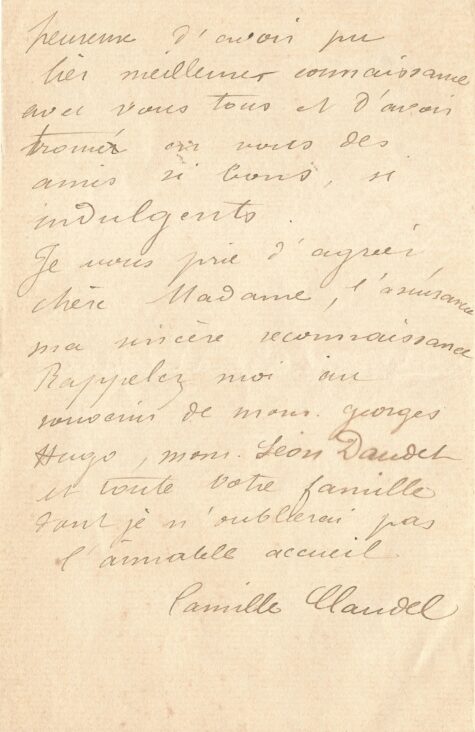 heureuse d'avoir pu
lier meilleure connaissance
avec vous tous et d'avoir
trouvé en vous des
amis si bons, si
indulgents.
Je vous prie d'agréer,
chère Madame, l'assurance
ma sincère reconnaissance
Rappelez moi au
souvenir de mons. georges
Hugo, mons. Léon Daudet
et toute votre famille
dont je n'oublierai pas
l'aimable accueil
Camille Claudel